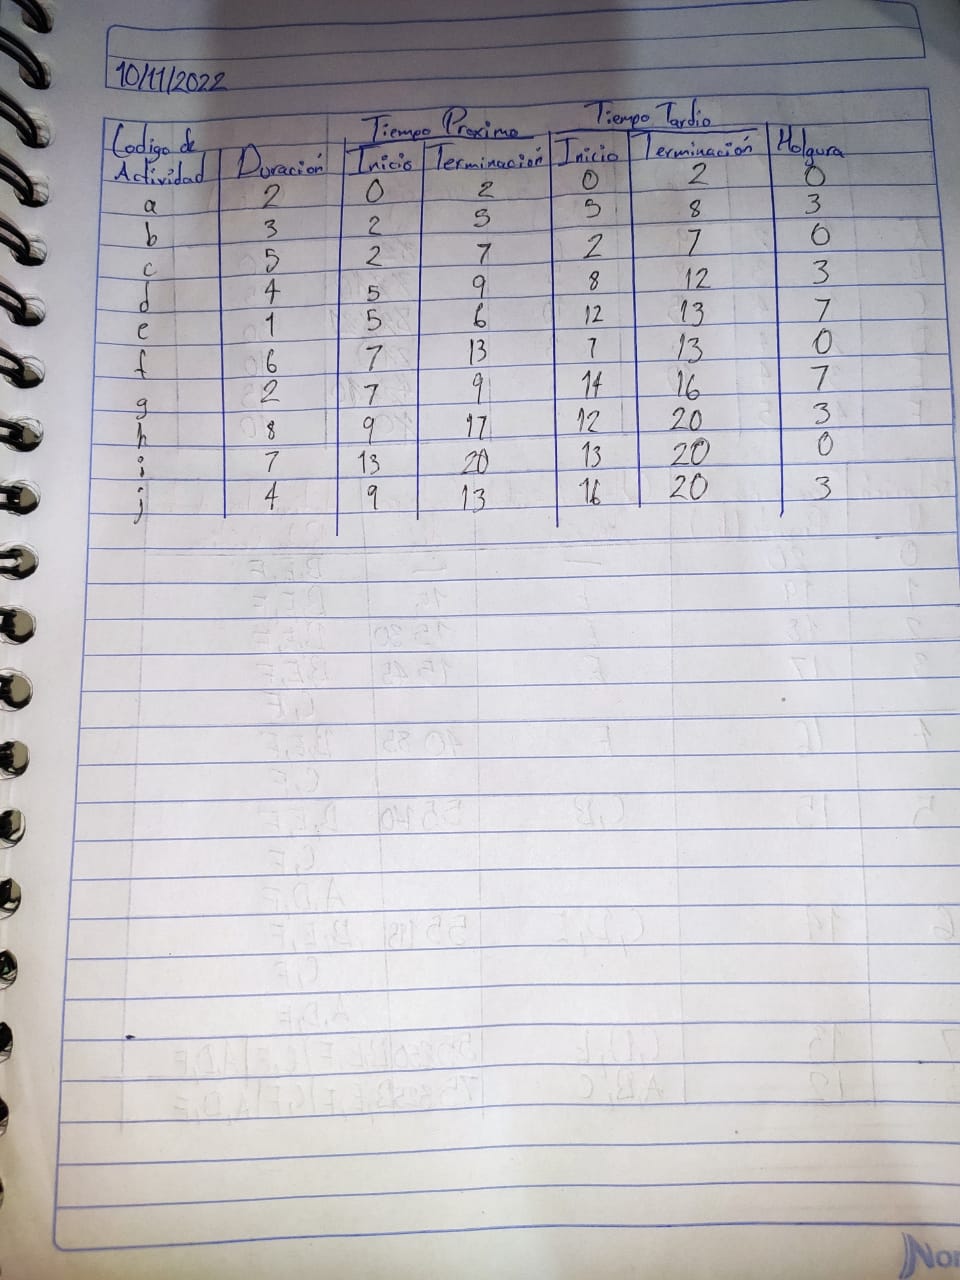 10/11/2022
Codigo de Actividad Duración Tiempo Proximo Inicio Terminación Tiempo Tardio Inicio Terminación Holgura
a 2 0 2 0 2 0
b 3 2 5 5 8 3
c 5 2 7 2 7 0
d 4 5 9 8 12 3
e 1 5 6 12 13 7
f 6 7 13 7 13 0
g 2 7 9 14 16 7
h 8 9 17 12 20 3
i 7 13 20 13 20 0
j 4 9 13 16 20 3
Nor